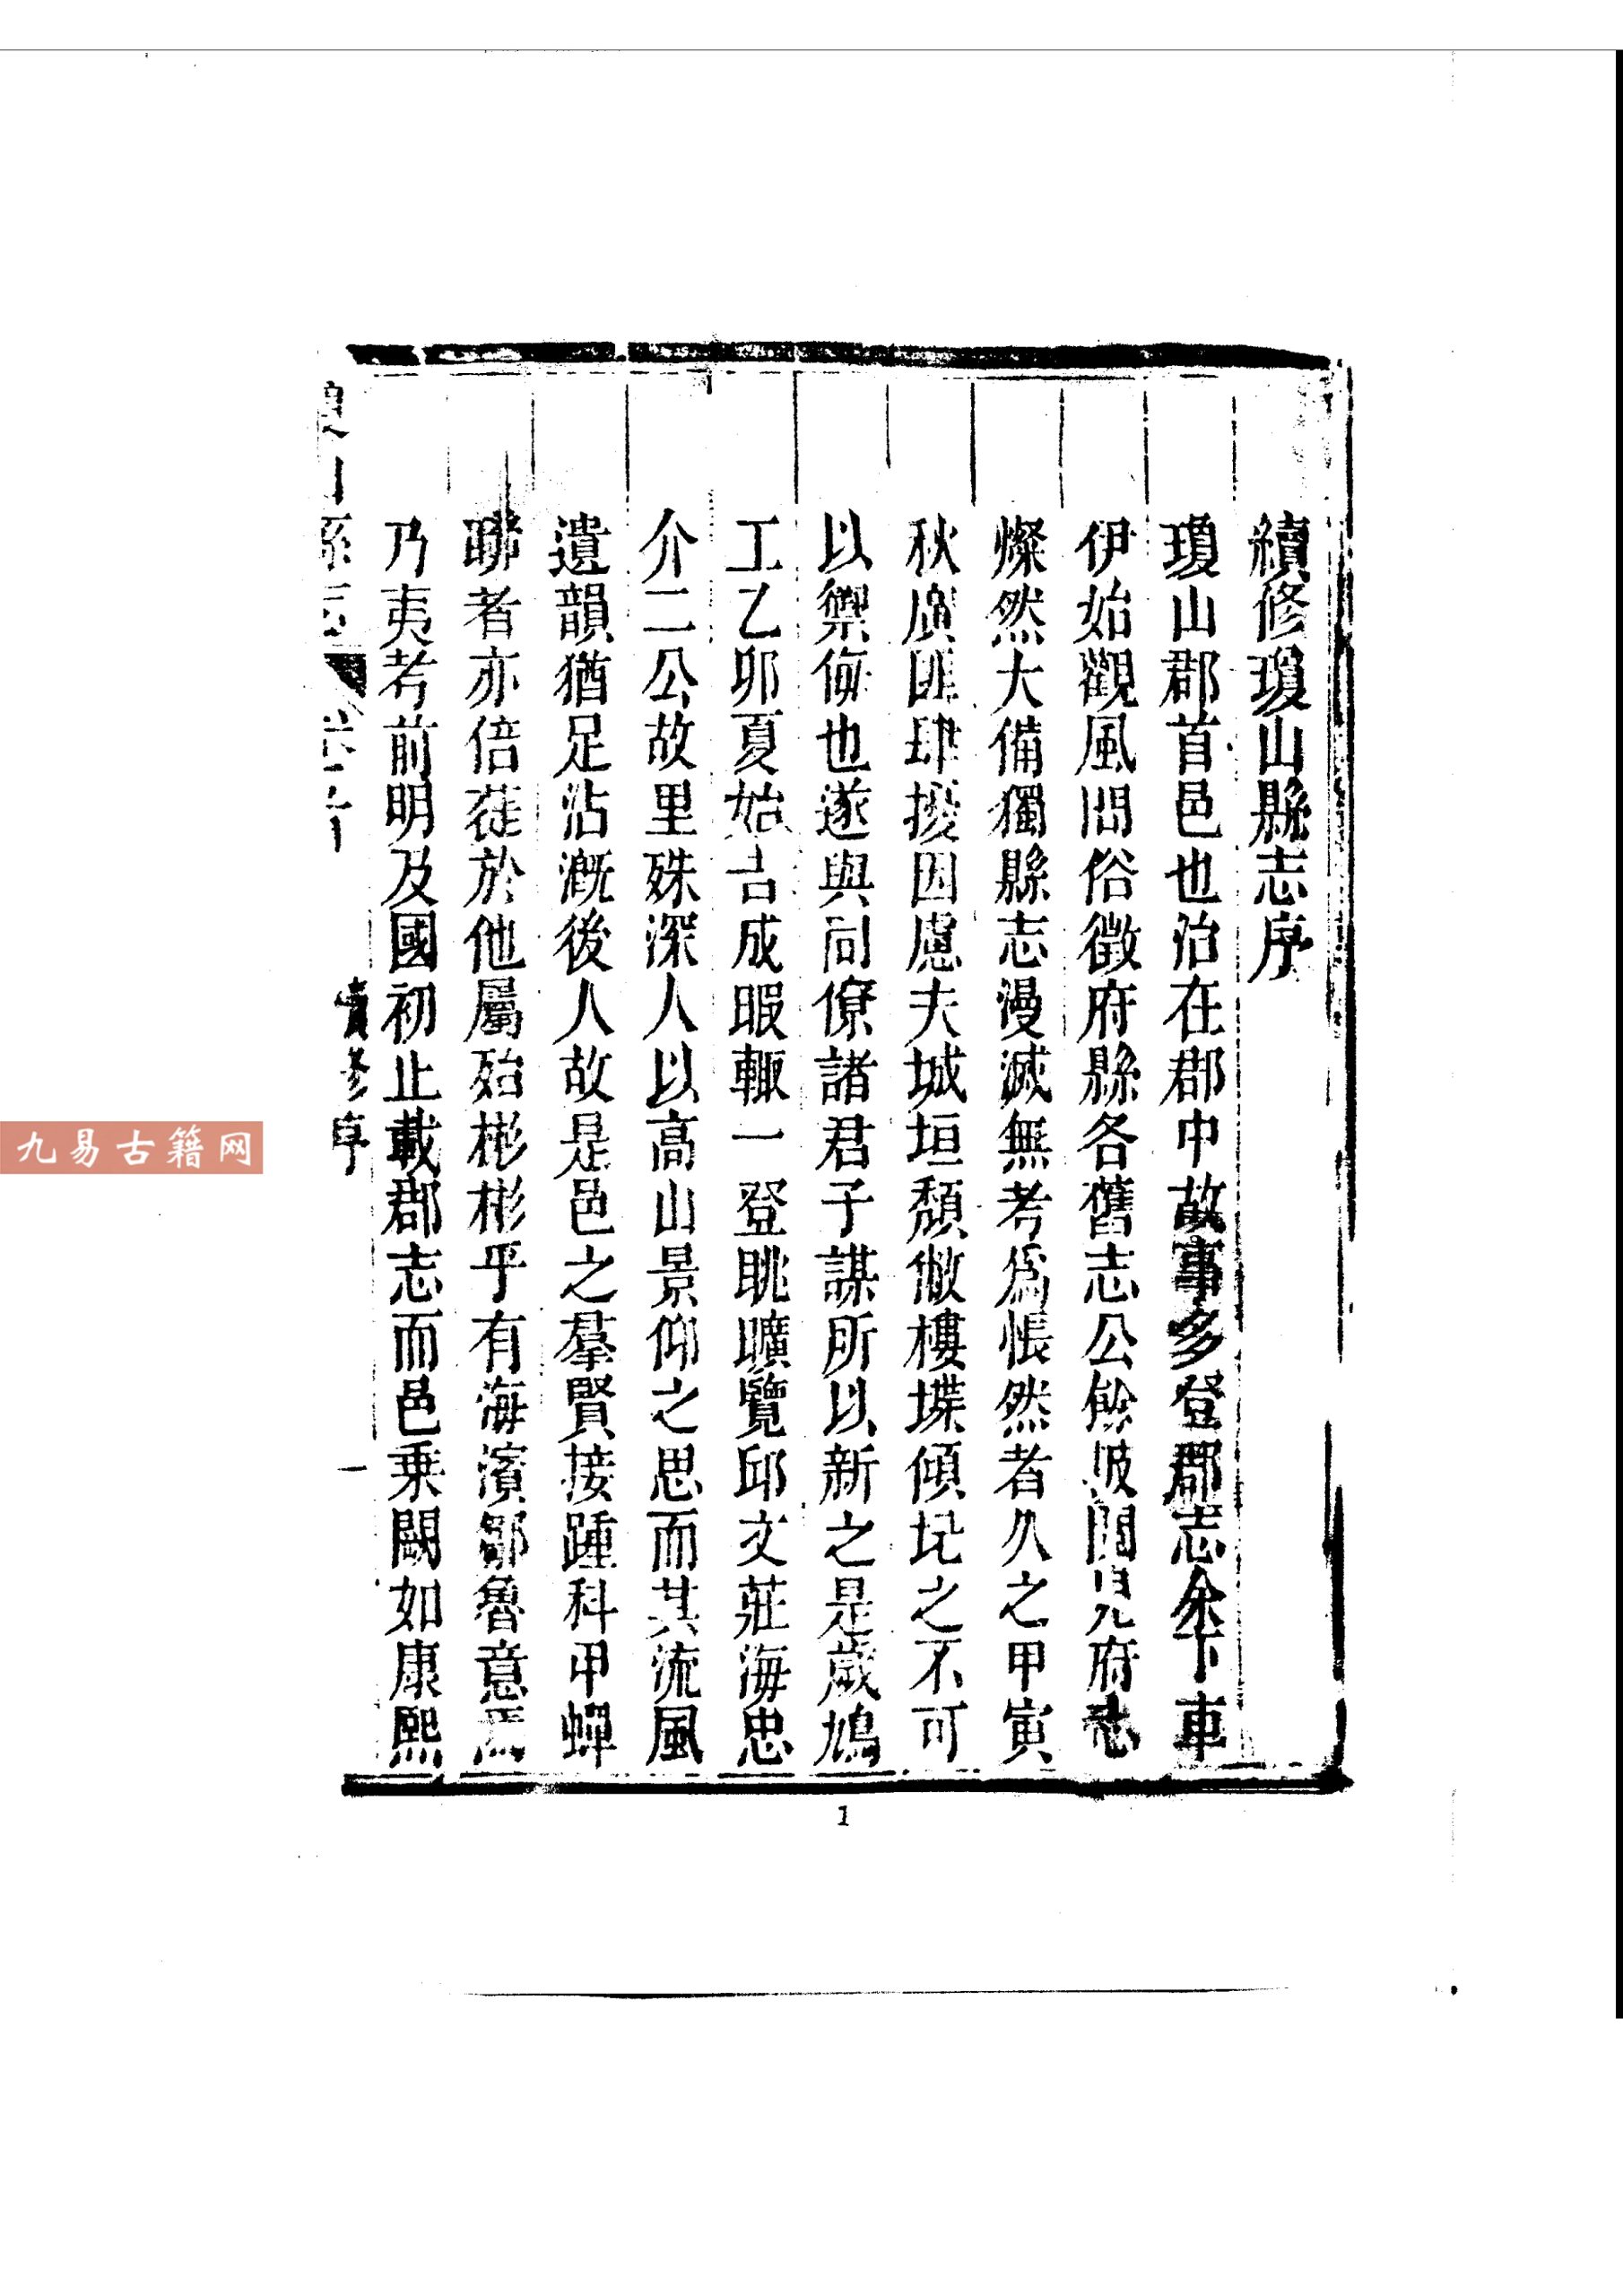 續修瓊山縣志序
瓊山郡首邑也治在郡中故事多登郡志余下車
伊始觀風問俗徵府縣各舊志公餘披閱見府志
燦然大備獨縣志漫滅無考爲悵然者久之甲寅
秋廣匪肆擾因慮夫城垣頹倣樓堞傾圮之不可
以禦侮也遂與同僚諸君子謀所以新之是歲鳩
工乙卯夏始告成暇輙一登眺曠覽邱文莊海忠
介二公故里殊深人以高山景仰之思而其流風
遺韻猶足沾漑後人故是邑之羣賢接踵科甲蟬
聯者亦倍蓰於他屬殆彬彬乎有海濱鄒魯意焉
乃夷考前明及國初止載郡志而邑乗闕如康熙
瓊山縣志
續修序
一
1
九易古籍网